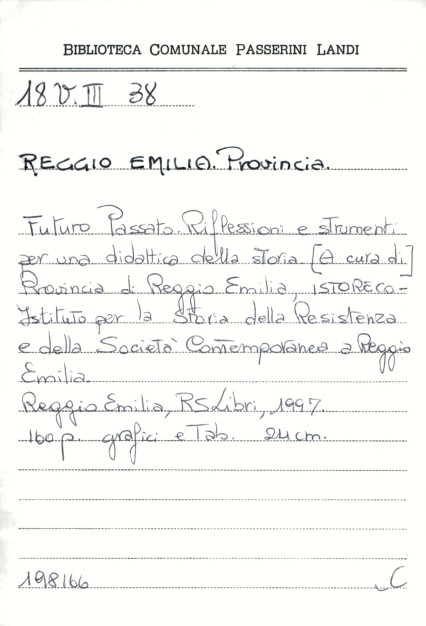 BIBLIOTECA COMUNALE PASSERINI LANDI
18 V. III 38
REGGIO EMILIA. Provincia.
Futuro Passato. Riflessioni e strumenti
per una didattica della storia. [A cura di]
Provincia di Reggio Emilia, ISTORECO-
Istituto per la Storia della Resistenza
e della Società Contemporanea a Reggio
Emilia.
Reggio Emilia, RS Libri, 1997.
160 p. grafici e Tab. 24 cm.
198166 C